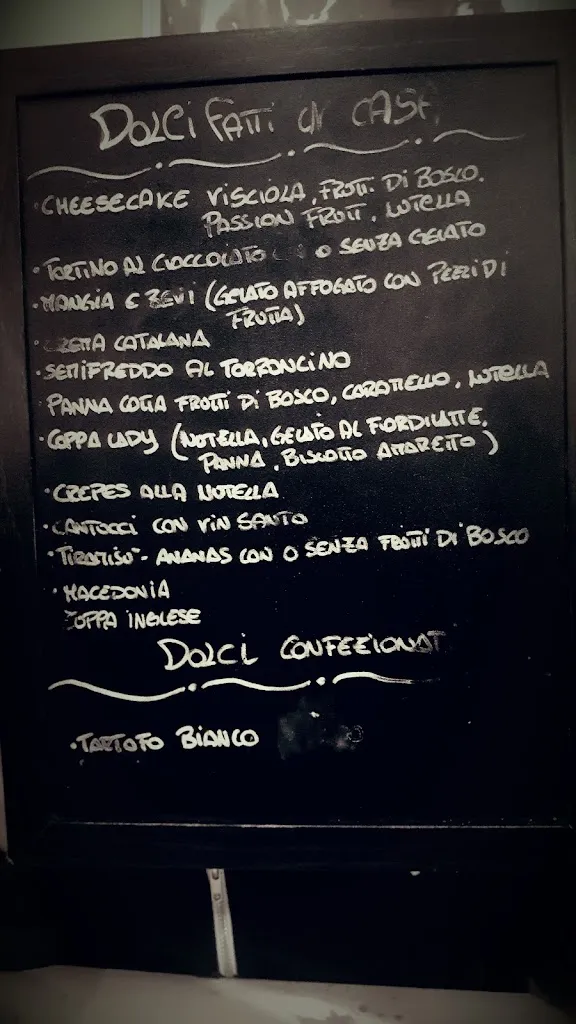 DOLCI FATTI IN CASA
• CHEESECAKE VISCIOLA, FRUTTI DI BOSCO,
PASSION FRUIT, NUTELLA
• TORTINO AL CIOCCOLATO O SENZA GELATO
• MANGIA E BEVI (GELATO AFFOGATO CON PEZZI DI
FRUTTA)
• CREMA CATALANA
• SEMIFREDDO AL TORRONCINO
PANNA COTTA FRUTTI DI BOSCO, CARAMELLO, NUTELLA
• COPPA LADY (NUTELLA, GELATO AL FIORDILATTE,
PANNA, BISCOTTO AMARETTO)
• CREPES ALLA NUTELLA
• CANTUCCI CON VIN SANTO
• TIRAMISU' - ANANAS CON O SENZA FRUTTI DI BOSCO
• MACEDONIA
ZUPPA INGLESE
DOLCI CONFEZIONATI
• TARTUFO BIANCO